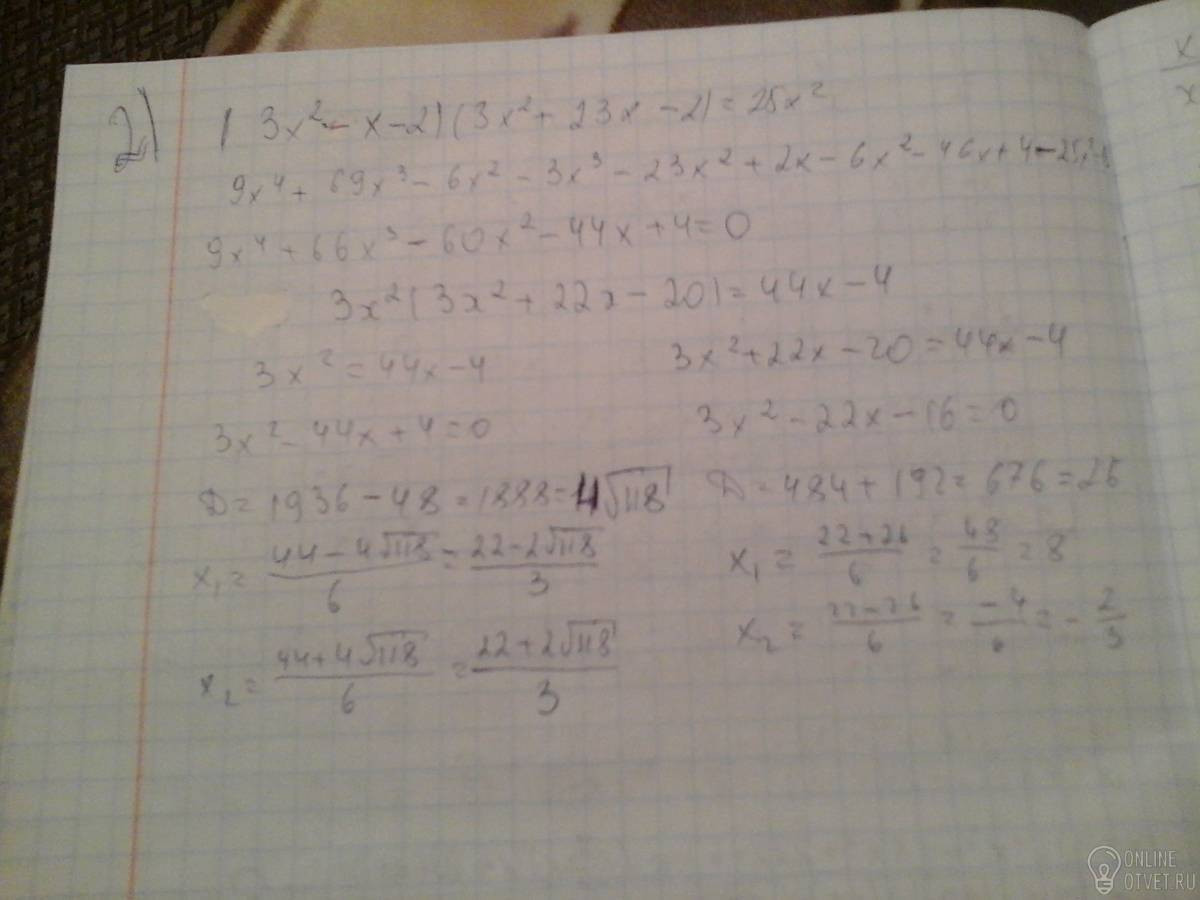 2)
( 3x² - x - 2)(3x² + 23x - 2) = 25x²
9x⁴ + 69x³ - 6x² - 3x³ - 23x² + 2x - 6x² - 46x + 4 - 25x²
9x⁴ + 66x³ - 60x² - 44x + 4 = 0
3x²(3x² + 22x - 20) = 44x - 4
3x² = 44x - 4
3x² - 44x + 4 = 0
D = 1936 - 48 = 1888 = 4√118
x₁ = (44 - 4√118)/6 = (22 - 2√118)/3
x₂ = (44 + 4√118)/6 = (22 + 2√118)/3
3x² + 22x - 20 = 44x - 4
3x² - 22x - 16 = 0
D = 484 + 192 = 676 = 26
x₁ = (22 + 26)/6 = 48/6 = 8
x₂ = (22 - 26)/6 = -4/6 = -2/3
x
x
ONLINE
OTVET.RU